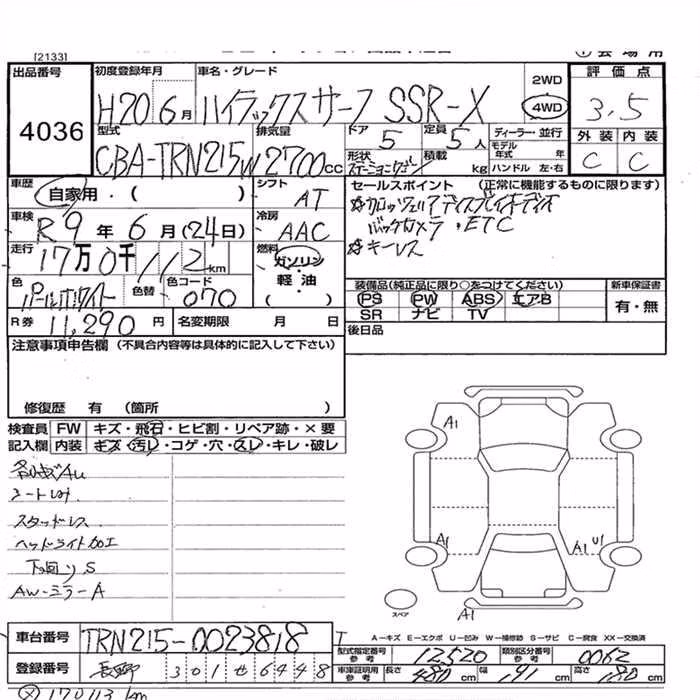 [2133]
出品番号 4036
初度登録年月 H20年6月
車名・グレード ハイラックスサーフ SSR-X
2WD 4WD
評価点 3.5
外装 内装
C C
型式 CBA-TRN215W
排気量 2700cc
ドア 5 定員 5人
形状 積載 kg
ディーラー・並行
モデル年式 年
ハンドル 左・右
車歴 自家用・( )
シフト AT
セールスポイント (正常に機能するものに限ります)
バックカメラ・ETC
キーレス
車検 R9年6月(24日)
冷房 AAC
走行 17万0千112km
燃料 ガソリン・軽油・( )
色 パールホワイト 色替 色コード 070
装備品(純正品に限り○をつけてください) 新車保証書
PS PW ABS エアB 有・無
SR ナビ TV
R券 11,290円 名変期限 月 日
後日品
注意事項申告欄 (不具合内容等は具体的に記入して下さい)
修復歴 有 (箇所 )
検査員 FW キズ・飛石・ヒビ割・リペア跡・×要
記入欄 内装 キズ・汚レ・コゲ・穴・スレ・キレ・破レ
スタッドレス
ヘッドライト加工
下回りS
AW-ミラーA
A1
A1
A1 U1
スペア
A1
車台番号 TRN215-0023818
A-キズ E-エクボ U-凹み W-補修跡 S-サビ C-腐食 XX-交換済
型式指定番号 参考 12520 類別区分番号 参考 0062
登録番号 長野 301せ6448
車庫証明用 参考 長さ 480cm 幅 191cm 高さ 180cm
170113 km